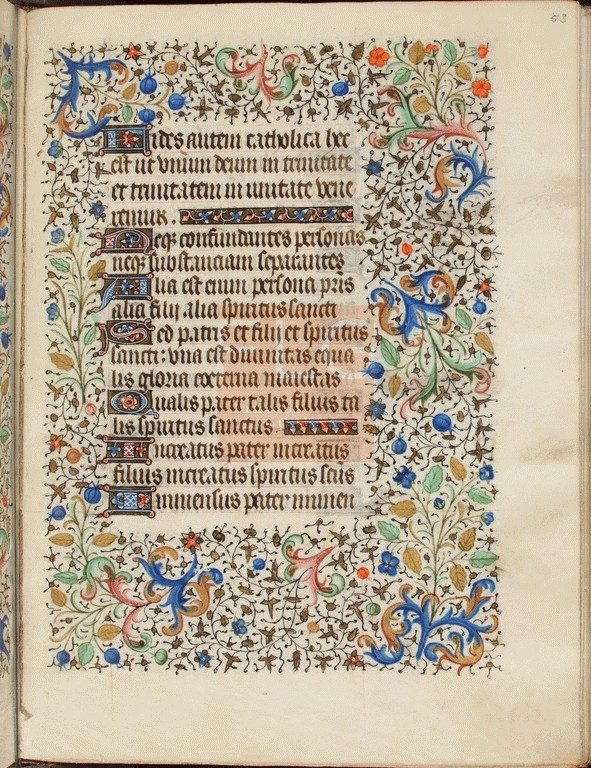 53
Fides autem catholica hec
est ut vnium deum in trinitate
et trinitatem in unitate vene
remur.
Neqꝫ confundantes personas
neqꝫ substanciam separantes
Alia est enim persona pr̄is
alia filii alia spiritus sancti
Sed patris et filii et spiritus
sancti: vna est diuinitas equa
lis gloria coeterna maiestas
Qualis pater talis filius ta
lis spiritus sanctus
Increatus pater increatus
filius increatus spiritus sc̄us
Immensus pater immen